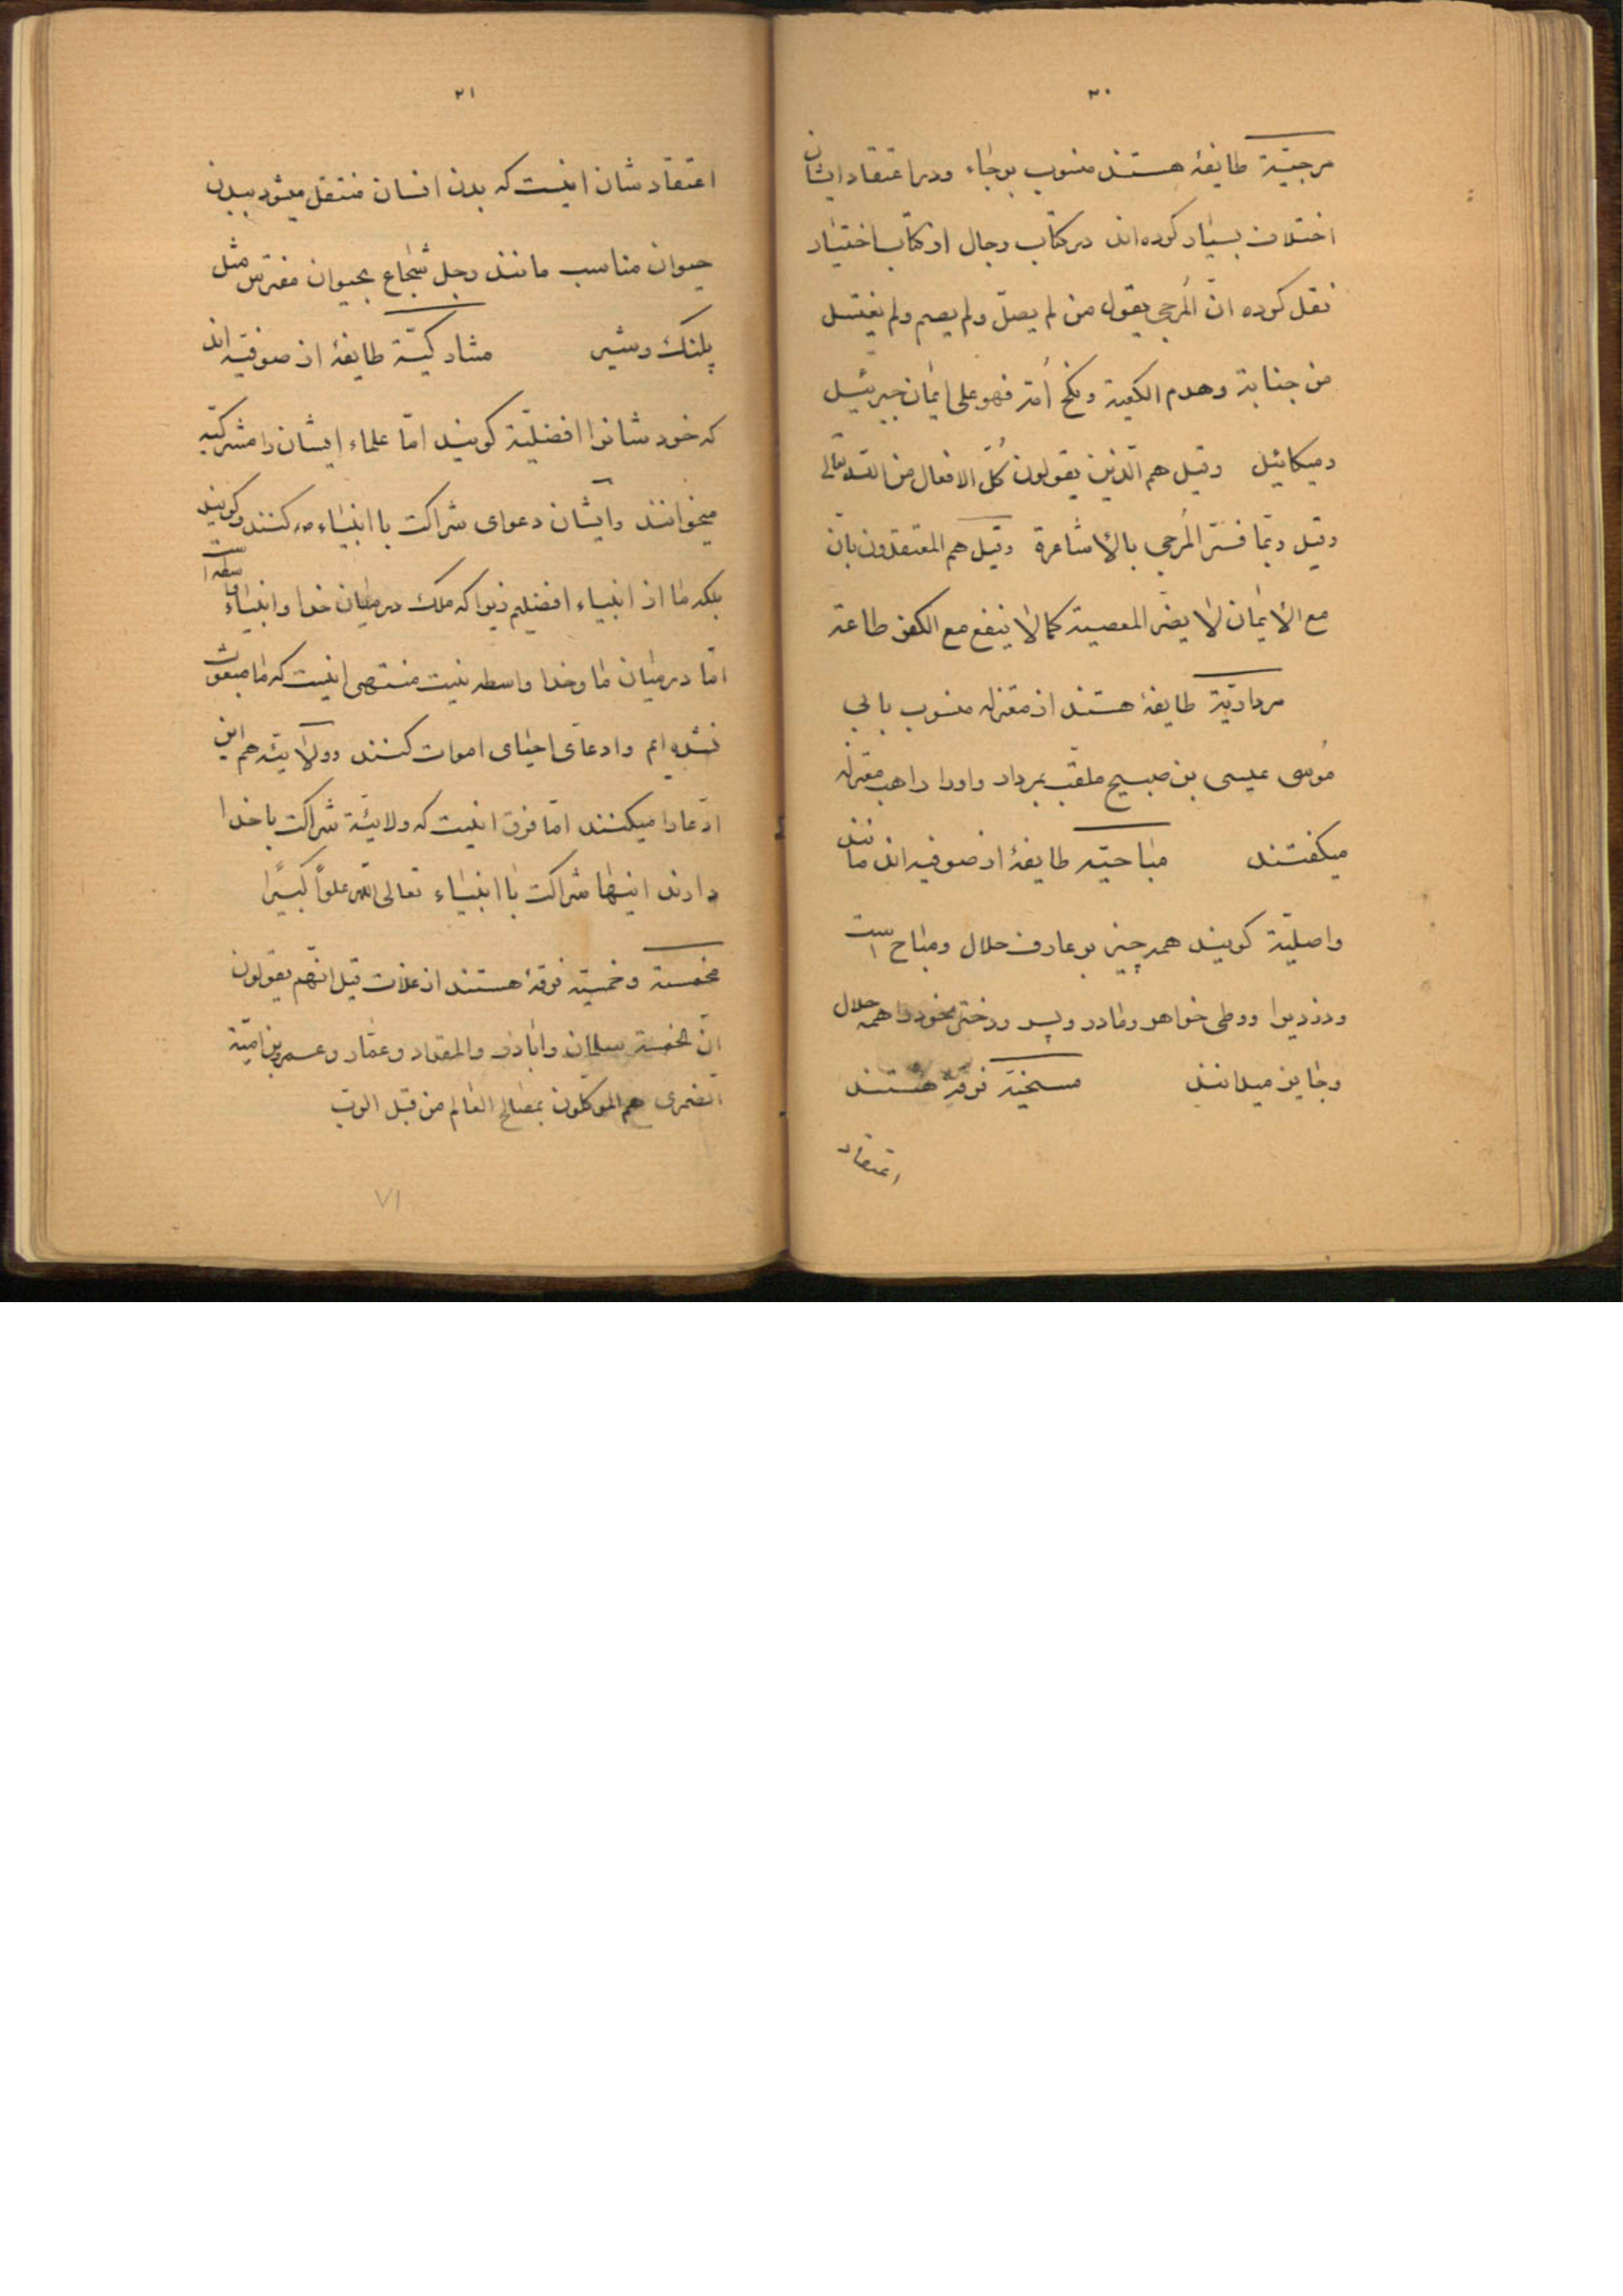 ۲۰
مرجئیة طایفهٔ هستند منسوب برجاء ودر اعتقاد ایشان
اختلاف بسیار کرده‌اند در کتاب رجال از کتاب اختیار
نقل کرده انّ المُرجی یقول من لم یصلّ ولم یصم ولم یغتسل
من جنابة وهدم الکعبة ونکح اُمّه فهو علی ایمان جبرئیل
ومیکائیل وقیل هم الّذین یقولون کُلّ الافعال من اللّه تعالی
وقیل ربّما فسّر المُرجی بالأشاعرة وقیل هم المعتقدون بانّ
مع الایمان لا یضرّ المعصیة کما لا ینفع مع الکفر طاعة
مرداریّة طایفهٔ هستند از معتزله منسوب بابی
مُوسی عیسی بن صبیح ملقّب بمردار واورا راهب معتزله
میکفتند مباحیّه طایفهٔ از صوفیه‌اند مانند
واصلیّة کویند همه چیز بر عارف حلال ومباح است
ودزدیرا ووطی خواهر ومادر وپسر ودختر خود را همه حلال
وجایز میدانند مسخیّه فرقهٔ هستند
اعتقاد
۲۱
اعتقاد شان اینست که بدن انسان منتقل میشود ببدن
حیوان مناسب مانند رجل شجاع بحیوان مفترس مثل
پلنک وشیر مشارکیّة طایفهٔ از صوفیّه‌اند
که خود شانرا افضلیّة کویند امّا علماء ایشان را مشرکیّه
میخوانند وایشان دعوای شراکت با انبیاء مه کنند وکویند
بلکه ما از انبیاء افضلیم زیرا که ملک در میان خدا وانبیاء واسطه است
امّا در میان ما وخدا واسطه نیست منتهی اینست که ما مبعوث
نشده‌ایم وادعای احیای اموات کنند وولایتّه هم این
ادّعا را میکنند امّا فرق اینست که ولایئة شراکت با خدا
دارند اینها شراکت با انبیاء تعالی اللّه علوّاً کبیًرا
مخمسة وخمیّه فرقهٔ هستند از غلات قیل انّهم یقولون
انّ الخمسة سلمان واباذر والمقداد وعمّار وعمرو بن امیّة
الضمری هم الموکلون بمصالح العالم من قبل الربّ
۷۱